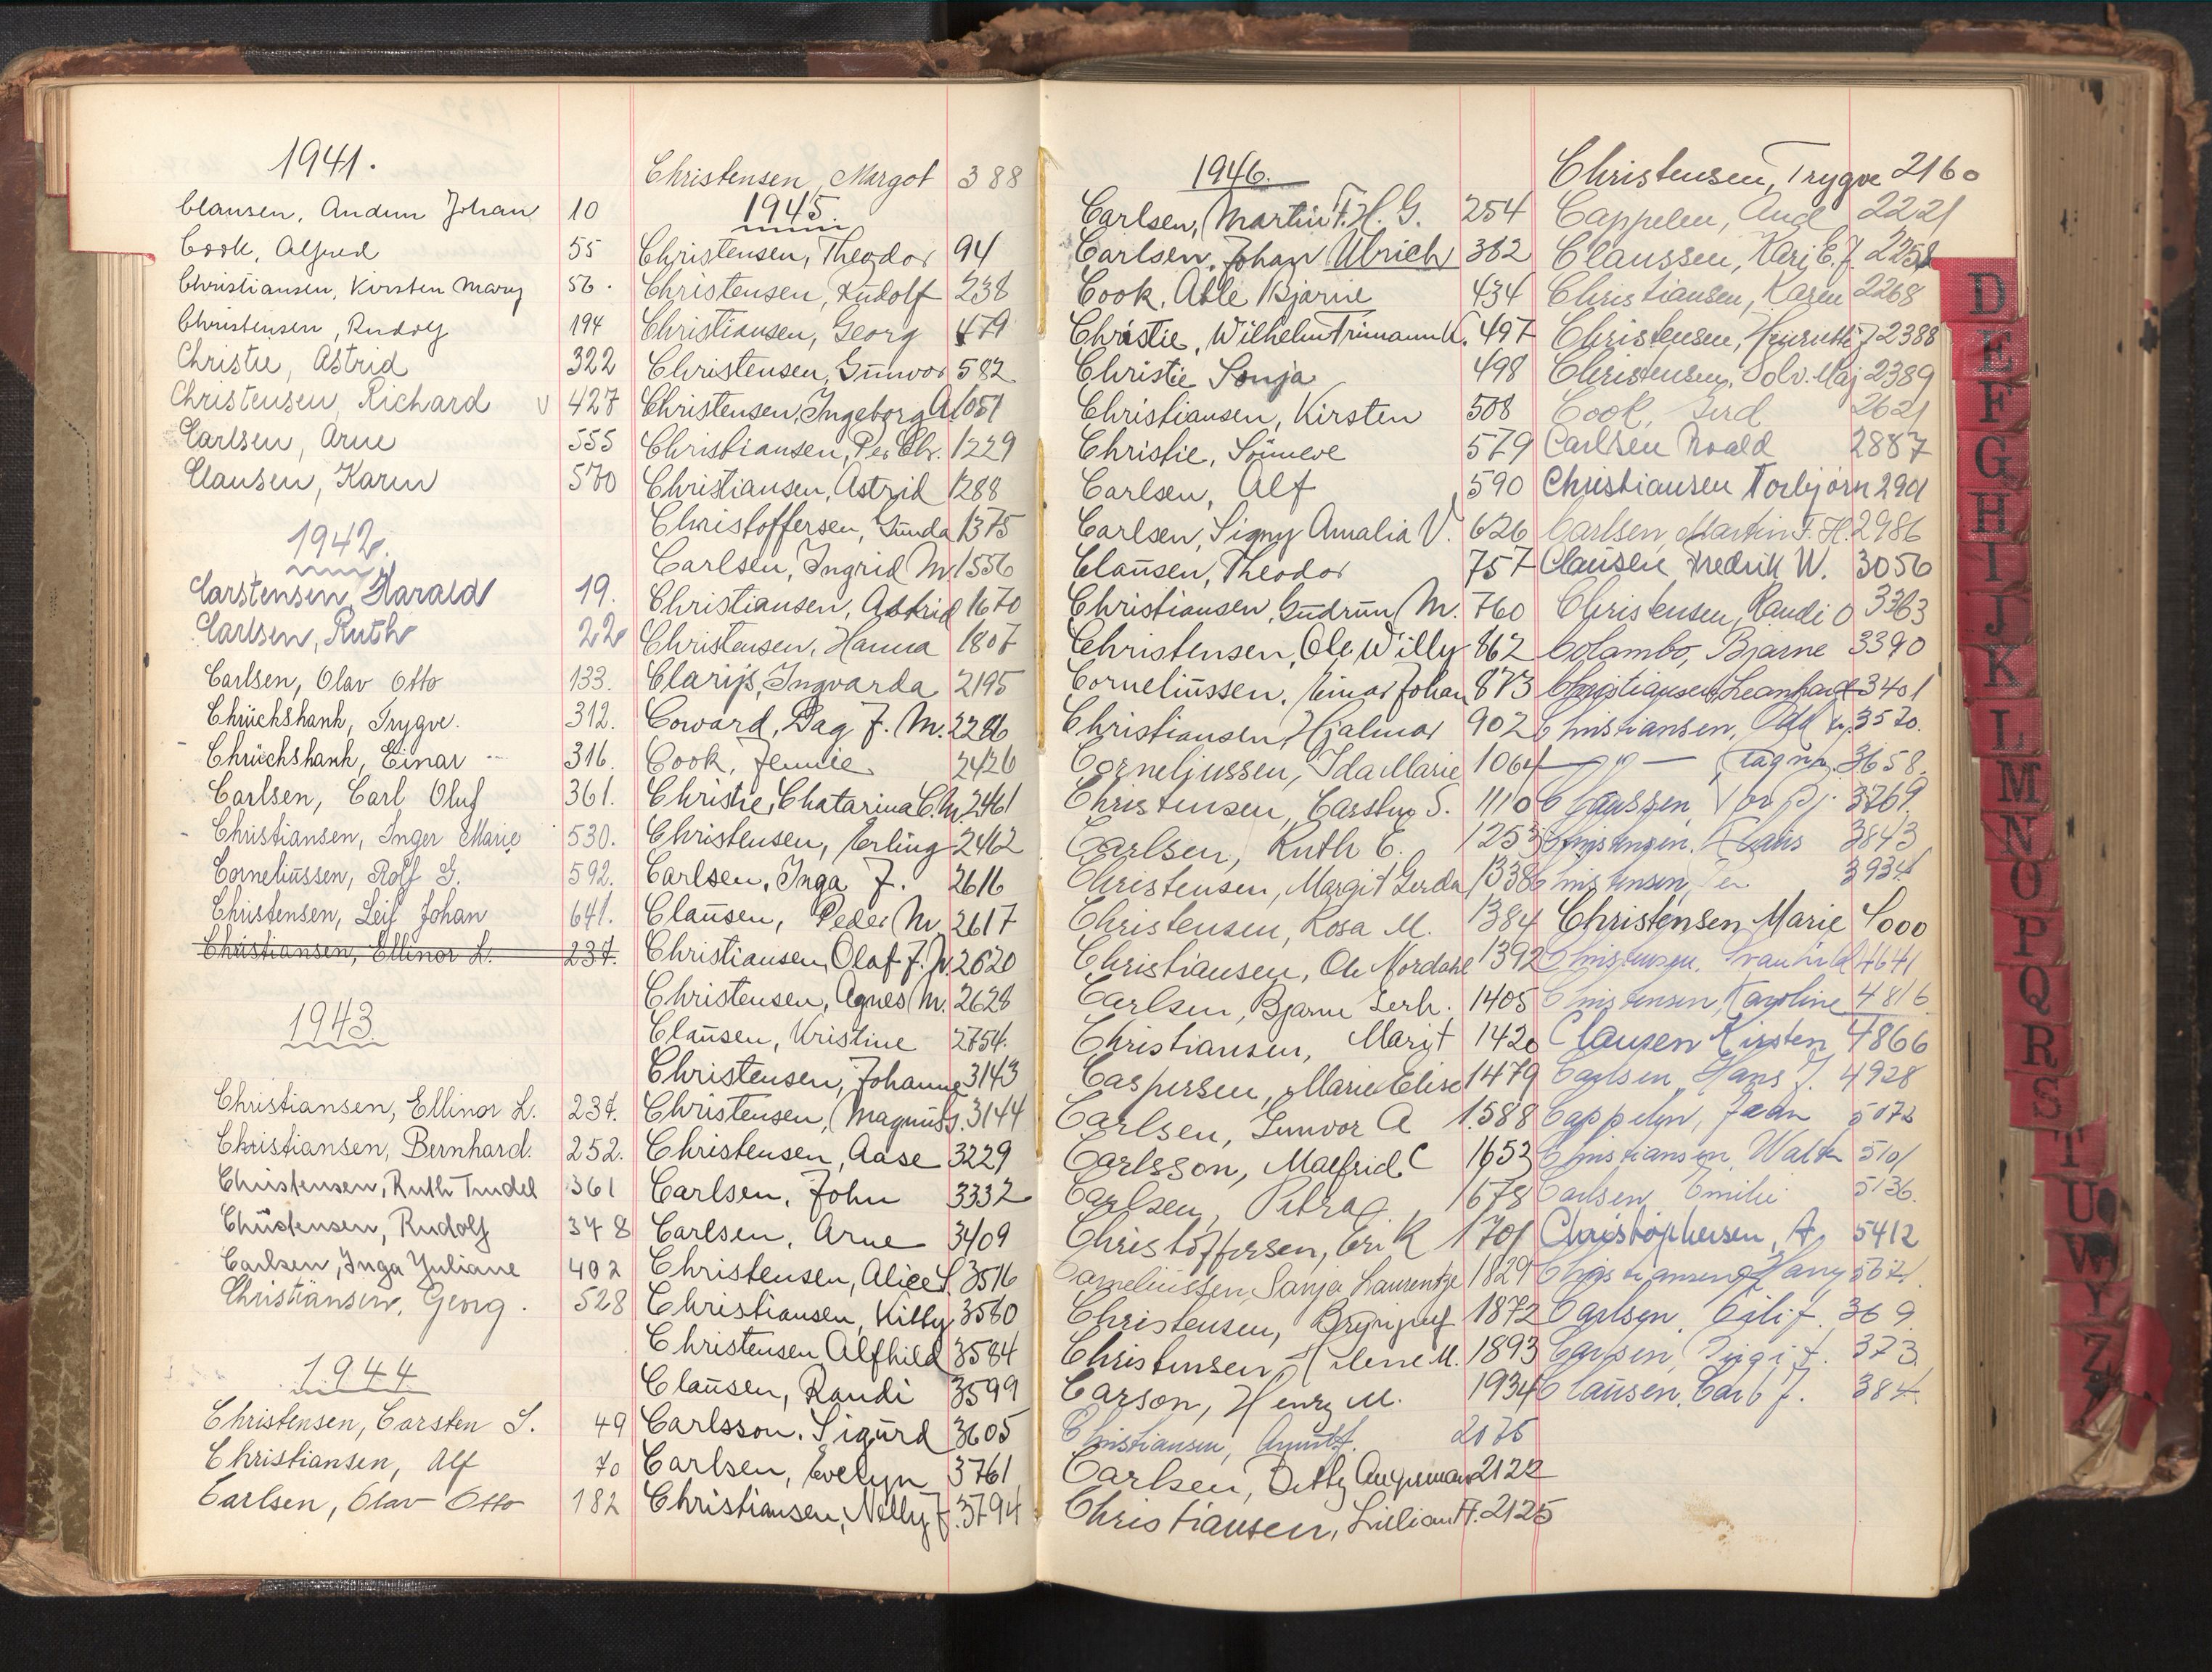 1941.
Clausen, Audun Johan 10
Cook, Alfred 55
Christiansen, Kirsten Mary 56.
Christensen, Rudolf 194
Christie, Astrid 322
Christensen, Richard v 427
Carlsen, Arne 555
Clausen, Karin 570
1942.
Carstensen, Harald 19.
Carlsen, Ruth 22
Carlsen, Olav Otto 133.
Chrückshank, Trygve. 312.
Chrückshank, Einar 316.
Carlsen, Carl Oluf 361.
Christiansen, Inger Marie 530.
Corneliussen, Rolf G. 592.
Christensen, Leif Johan 641.
Christiansen, Ellinor L. 237.
1943.
Christiansen, Ellinor L. 237.
Christiansen, Bernhard. 252.
Christensen, Ruth Trudel 361
Christensen, Rudolf 378
Carlsen, Inga Juliane 402
Christiansen, Georg. 528
1944
Christensen, Carsten S. 49
Christiansen, Alf 70
Carlsen, Olav Otto 182
Christensen, Margot 388
1945.
Christensen, Theodor 94
Christensen, Rudolf 238
Christiansen, Georg 479
Christensen, Gunvor 582
Christensen, Ingeborg A. 1051
Christiansen, Per Chr. 1229
Christiansen, Astrid 1288
Christoffersen, Gunda 1375
Carlsen, Ingrid M. 1556
Christiansen, Astrid 1670
Christensen, Hanna 1807
Clarijs, Ingvarda 2195
Coward, Dag F. M. 2286
Cook, Jennie 2426
Christie, Chatarina C. M. 2461
Christensen, Erling 2462
Carlsen, Inga J. 2616
Clausen, Peder M. 2617
Christiansen, Olaf J. 2620
Christensen, Agnes M. 2628
Clausen, Kristine 2754.
Christensen, Johanne 3143
Christensen, Magnus 3144
Christensen, Aase 3229
Carlsen, John 3332
Carlsen, Arne 3409
Christensen, Alice S. 3516
Christiansen, Kitty 3580
Christensen, Alfhild 3584
Clausen, Randi 3599
Carlsson, Sigurd 3605
Carlsen, Evelyn 3761
Christiansen, Nelly J. 3794
1946.
Carlsen, Martin F. H. G. 254
Carlsen, Johan Ulrich 362
Cook, Atle Bjarne 434
Christie, Wilhelm Frimann K. 497
Christie Sonja 498
Christiansen, Kirsten 508
Christie, Sünneve 579
Carlsen, Alf 590
Carlsen, Signy Amalia V. 626
Clausen, Theodor 757
Christiansen, Gudrun M. 760
Christensen, Ole Willy 862
Corneliussen, Einar Johan 873
Christiansen, Hjalmar 902
Corneliussen, Ida Marie 1064
Christensen, Carsten S. 1110
Carlsen, Ruth E. 1253
Christensen, Margit Gerda 1338
Christensen, Rosa M. 1384
Christiansen, Ole Nordahl 1392
Carlsen, Bjarne Gerh. 1405
Christiansen, Marit 1420
Caspersen, Marie Elise 1479
Carlsen, Gunvor A 1588
Carlsson, Malfrid C 1653
Carlsen, Petra 1678
Christoffersen, Erik 1701
Corneliussen, Sonja Laurentze 1829
Christensen, Brynjulf 1872
Christensen Helene M. 1893
Carson, Henry M. 1934
Christiansen, 2075
Carlsen, Betty 2122
Christiansen, Lillian H. 2125
Christensen, Trygve 2160
Cappelen, Aud 2221
Claussen, Kari E. J. 2258
Christiansen, Karen 2268
Christensen, J 2388
Christensen, Solv. Maj 2389
Cook, Gerd 2621
Carlsen Roald 2887
Christiansen Torbjørn 2901
Carlsen, Martin F. H. 2986
Clausen Fredrik W. 3056
Christensen, Randi O 3363
Colambo, Bjarne 3390
Christiansen, Leonhard 3401
Christiansen, Odd 3520.
— " — Ragna 3658.
Claussen, 3769.
Christensen, 3843
Christensen, Per 3934
Christensen Marie 4000
Christensen, Svanhild 4641
Christensen, Karoline 4816
Clausen Kirsten 4866
Carlsen, Hans J. 4928
Cappelen, Jean 5072
Christiansen, Walter 5101
Carlsen, Emilie 5136.
Christophersen, A. 5412
Christiansen, Harry
Carlsen, Eilif. 369
Carlsen, Birgit. 373
Clausen, Carl J. 384
D
E
F
G
H
I
J
K
L
M
N
O
P
Q
R
S
T
U
W
Y
Z